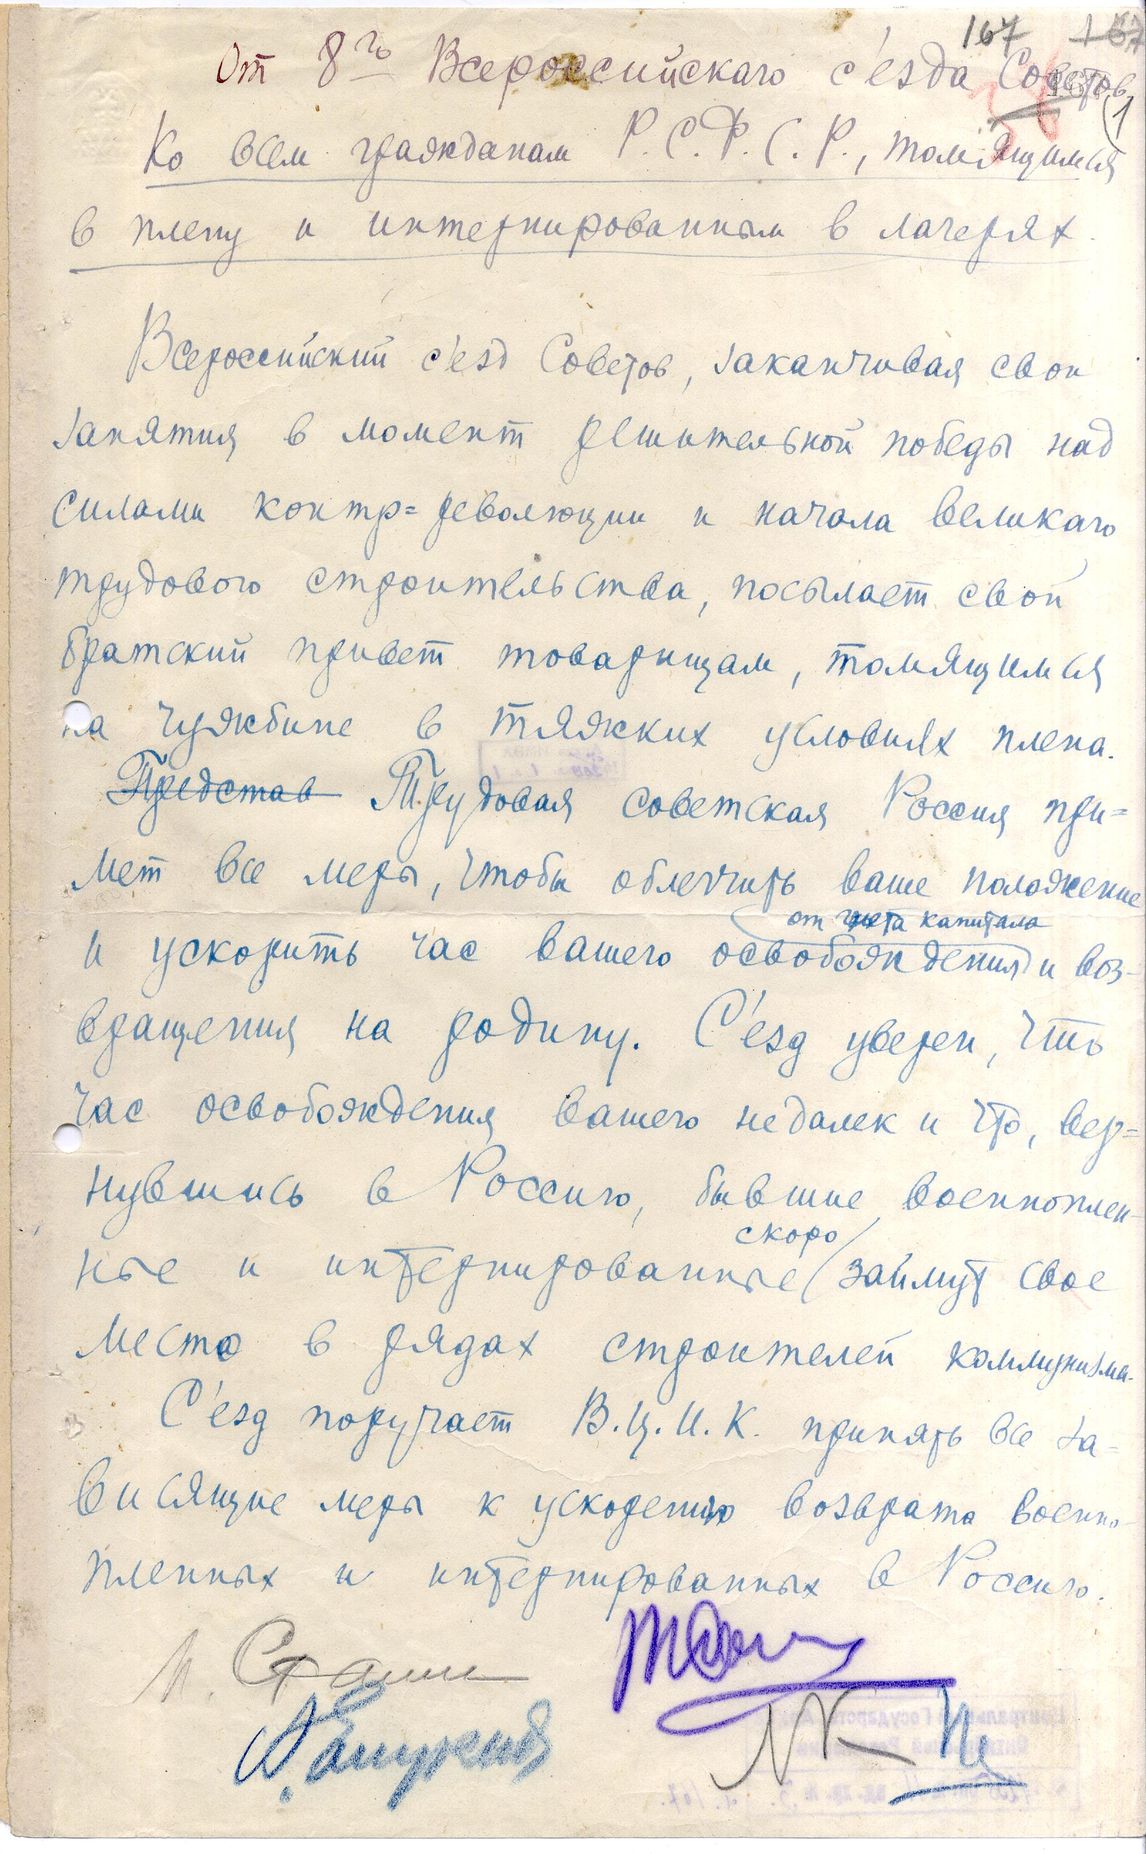 167 167
От 8го Всероссийскаго с'езда Советов
(1
Ко всем гражданам Р.С.Ф.С.Р., томящимся
в плену и интернированным в лагерях.
Всероссийский с'езд Советов, заканчивая свои
занятия в момент решительной победы над
силами контр=революции и начала великаго
трудового строительства, посылает свой
братский привет товарищам, томящимся
на чужбине в тяжких условиях плена.
Представ Трудовая советская Россия при=
мет все меры, чтобы облегчить ваше положение
от гнета капитала
и ускорить час вашего освобождения и воз-
вращения на родину. С'езд уверен, что
час освобождения вашего недалек и что, вер=
нувшись в Россию, бывшие военноплен-
скоро
ные и интернированные займут свое
место в рядах строителей коммунизма.
С'езд поручает В.Ц.И.К. принять все за-
висящие меры к ускорению возврата военно-
пленных и интернированных в Россию.
И. Сталин